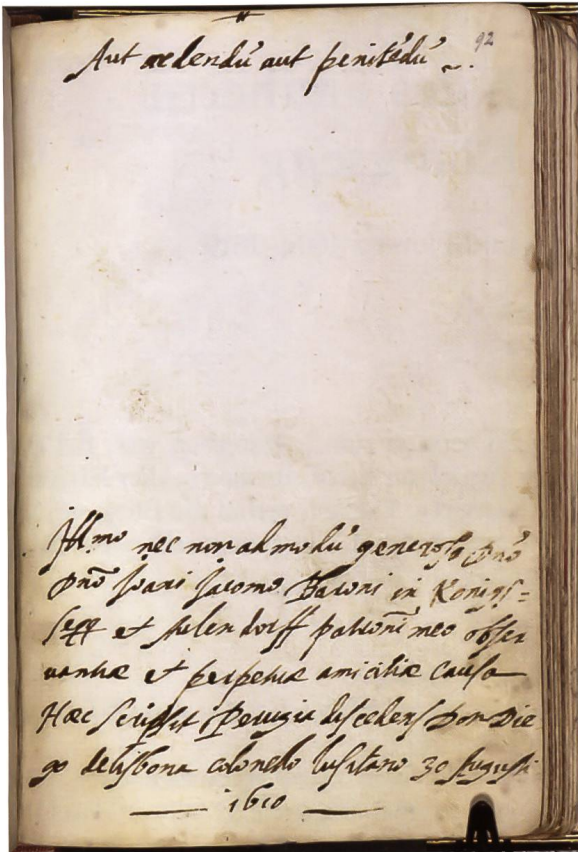 92
Aut credendũ aut penitẽdũ
Ill.mo nec non admodũ generoso Dno
Dño Joani Jacomo Baroni in Konigs=
segg et Aulendorff patronõ meo obser
vantiæ et perpetuæ amicitiæ causa
Hæc scripsit Perugia discedens Don Die
go de lisbona colonello lusitano 30 Augusti
1610